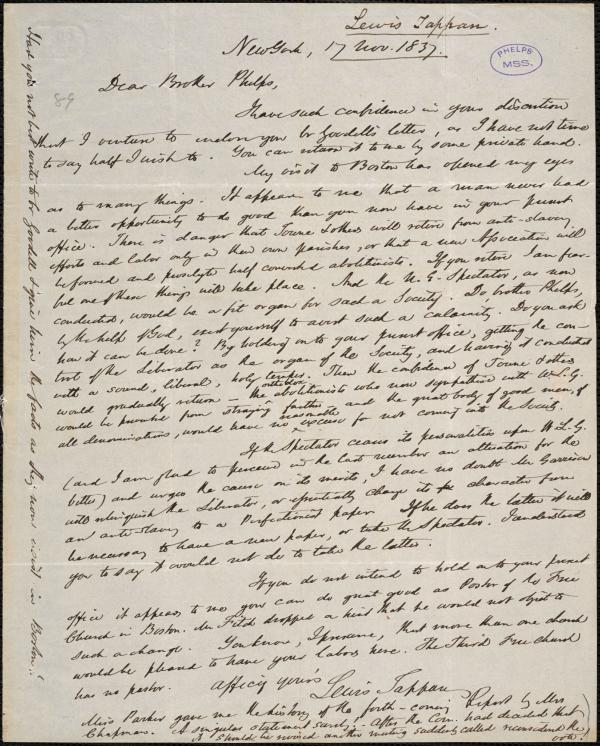 Lewis Tappan.
New York, 17 Nov. 1837.
PHELPS
MSS.
89
Dear Brother Phelps,
I have such confidence in your discretion
that I venture to inclose you br Goodell's letter, as I have not time
to say half I wish to. You can return it to me by some private hand.
My visit to Boston has opened my eyes
as to many things. It appears to me that a man never had
a better opportunity to do good than you now have in your present
office. There is danger that Towne & others will retire from anti-slavery
efforts and labor only in their own parishes, or that a new Association will
be formed and proselyte half converted abolitionists. If you retire I am fear-
ful one of these things will take place. And the N. E. Spectator, as now
conducted, would be a fit organ for such a Society. Do brother Phelps,
by the help of God, exert yourself to avert such a calamity. Do you ask
how it can be done? By holding on to your present office, getting the con-
trol of the Liberator as the organ of the Society, and having it conducted
with a sound, liberal, holy temper. Then the confidence of Towne & others
would gradually return — the abolitionists who now sympathise with W.L.G.
would be prevented from straying farther — and the great body of good men, of
all denominations, would have no reasonable excuse for not coming into the Society.
If the Spectator ceases its personalities upon W L. G.
(and I am glad to perceive in the last number an alteration for the
better) and urges the cause on its merits, I have no doubt Mr Garrison
will relinquish the Liberator, or effectually change its character from
an anti-slavery to a Perfectionist paper. If he does the latter it will
be necessary to have a new paper, or take the Spectator. I understood
you to say it would not do to take the latter.
If you do not intend to hold on to your present
office it appears to me you can do great good as Pastor of the Free
Church in Boston. Mr Fitch dropped a hint that he would not object to
such a change. You know, I presume, that more than one church
would be pleased to have your labors here. The Third Free church
has no pastor. Affecly yours
Lewis Tappan
Miss Parker gave me the history of the forth-coming Report by Mrs
Chapman. A singular statement surely: - after the Com. had decided that
it should be revised another meeting suddenly called reconsidered the
vote!
Had you not best write to br Goodell & give him the facts as they now exist in Boston?